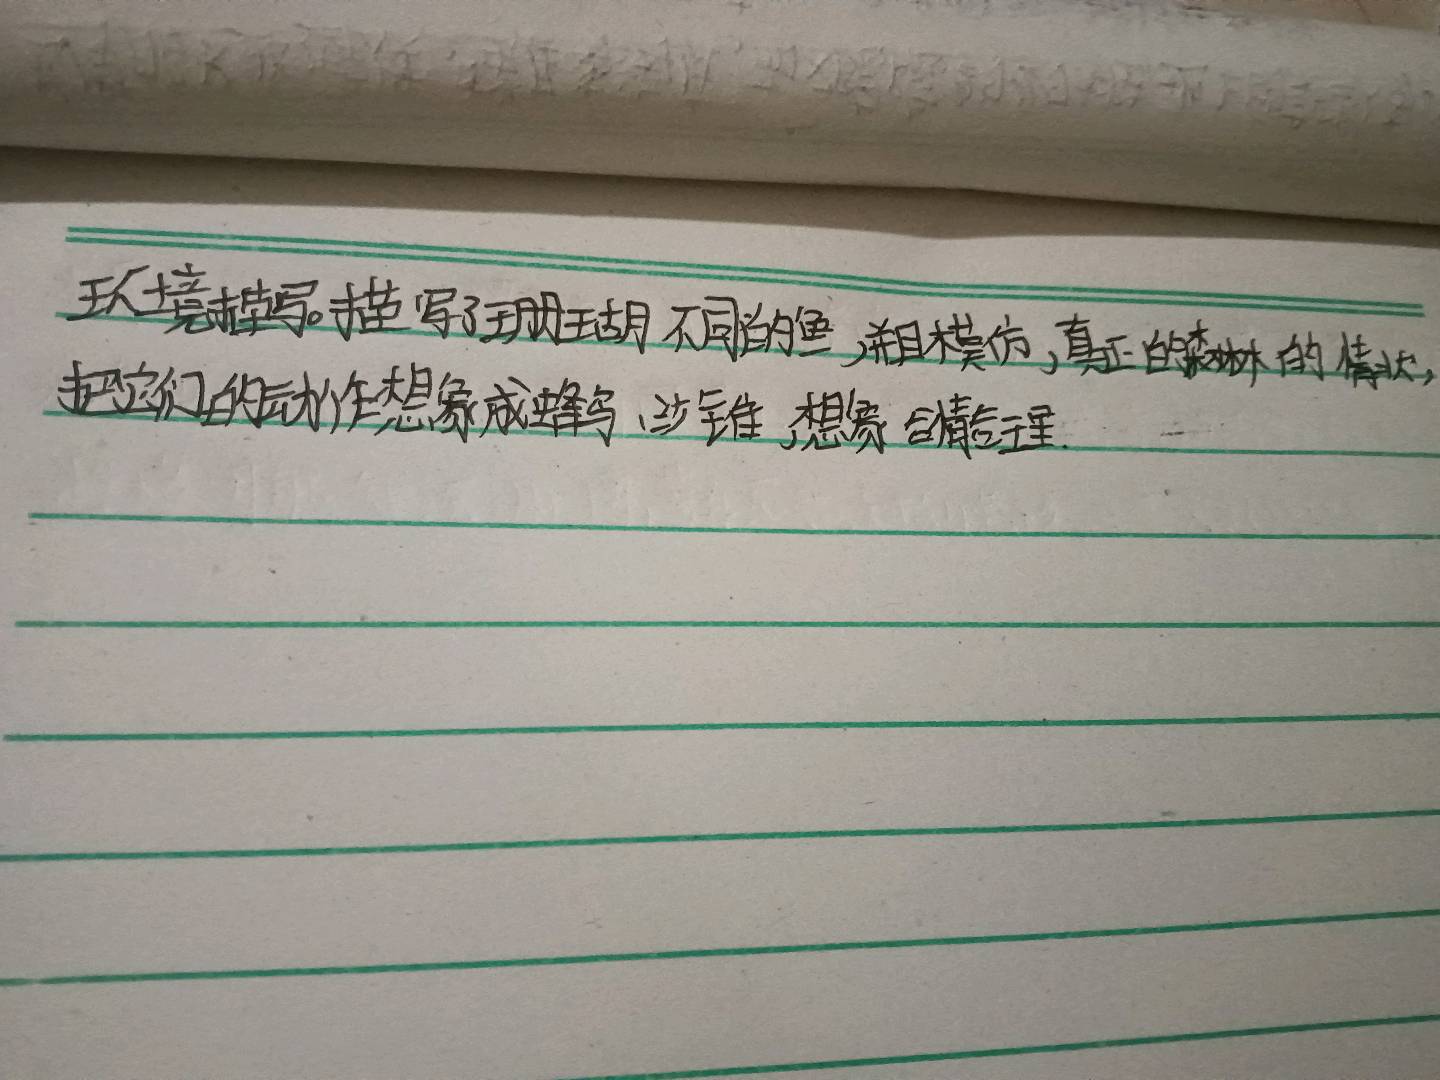 环境描写。描写了珊瑚不同的鱼,并且模仿,真正的森林的情状,
把它们的动作想象成蜂鸟、沙锥,想象合情合理.